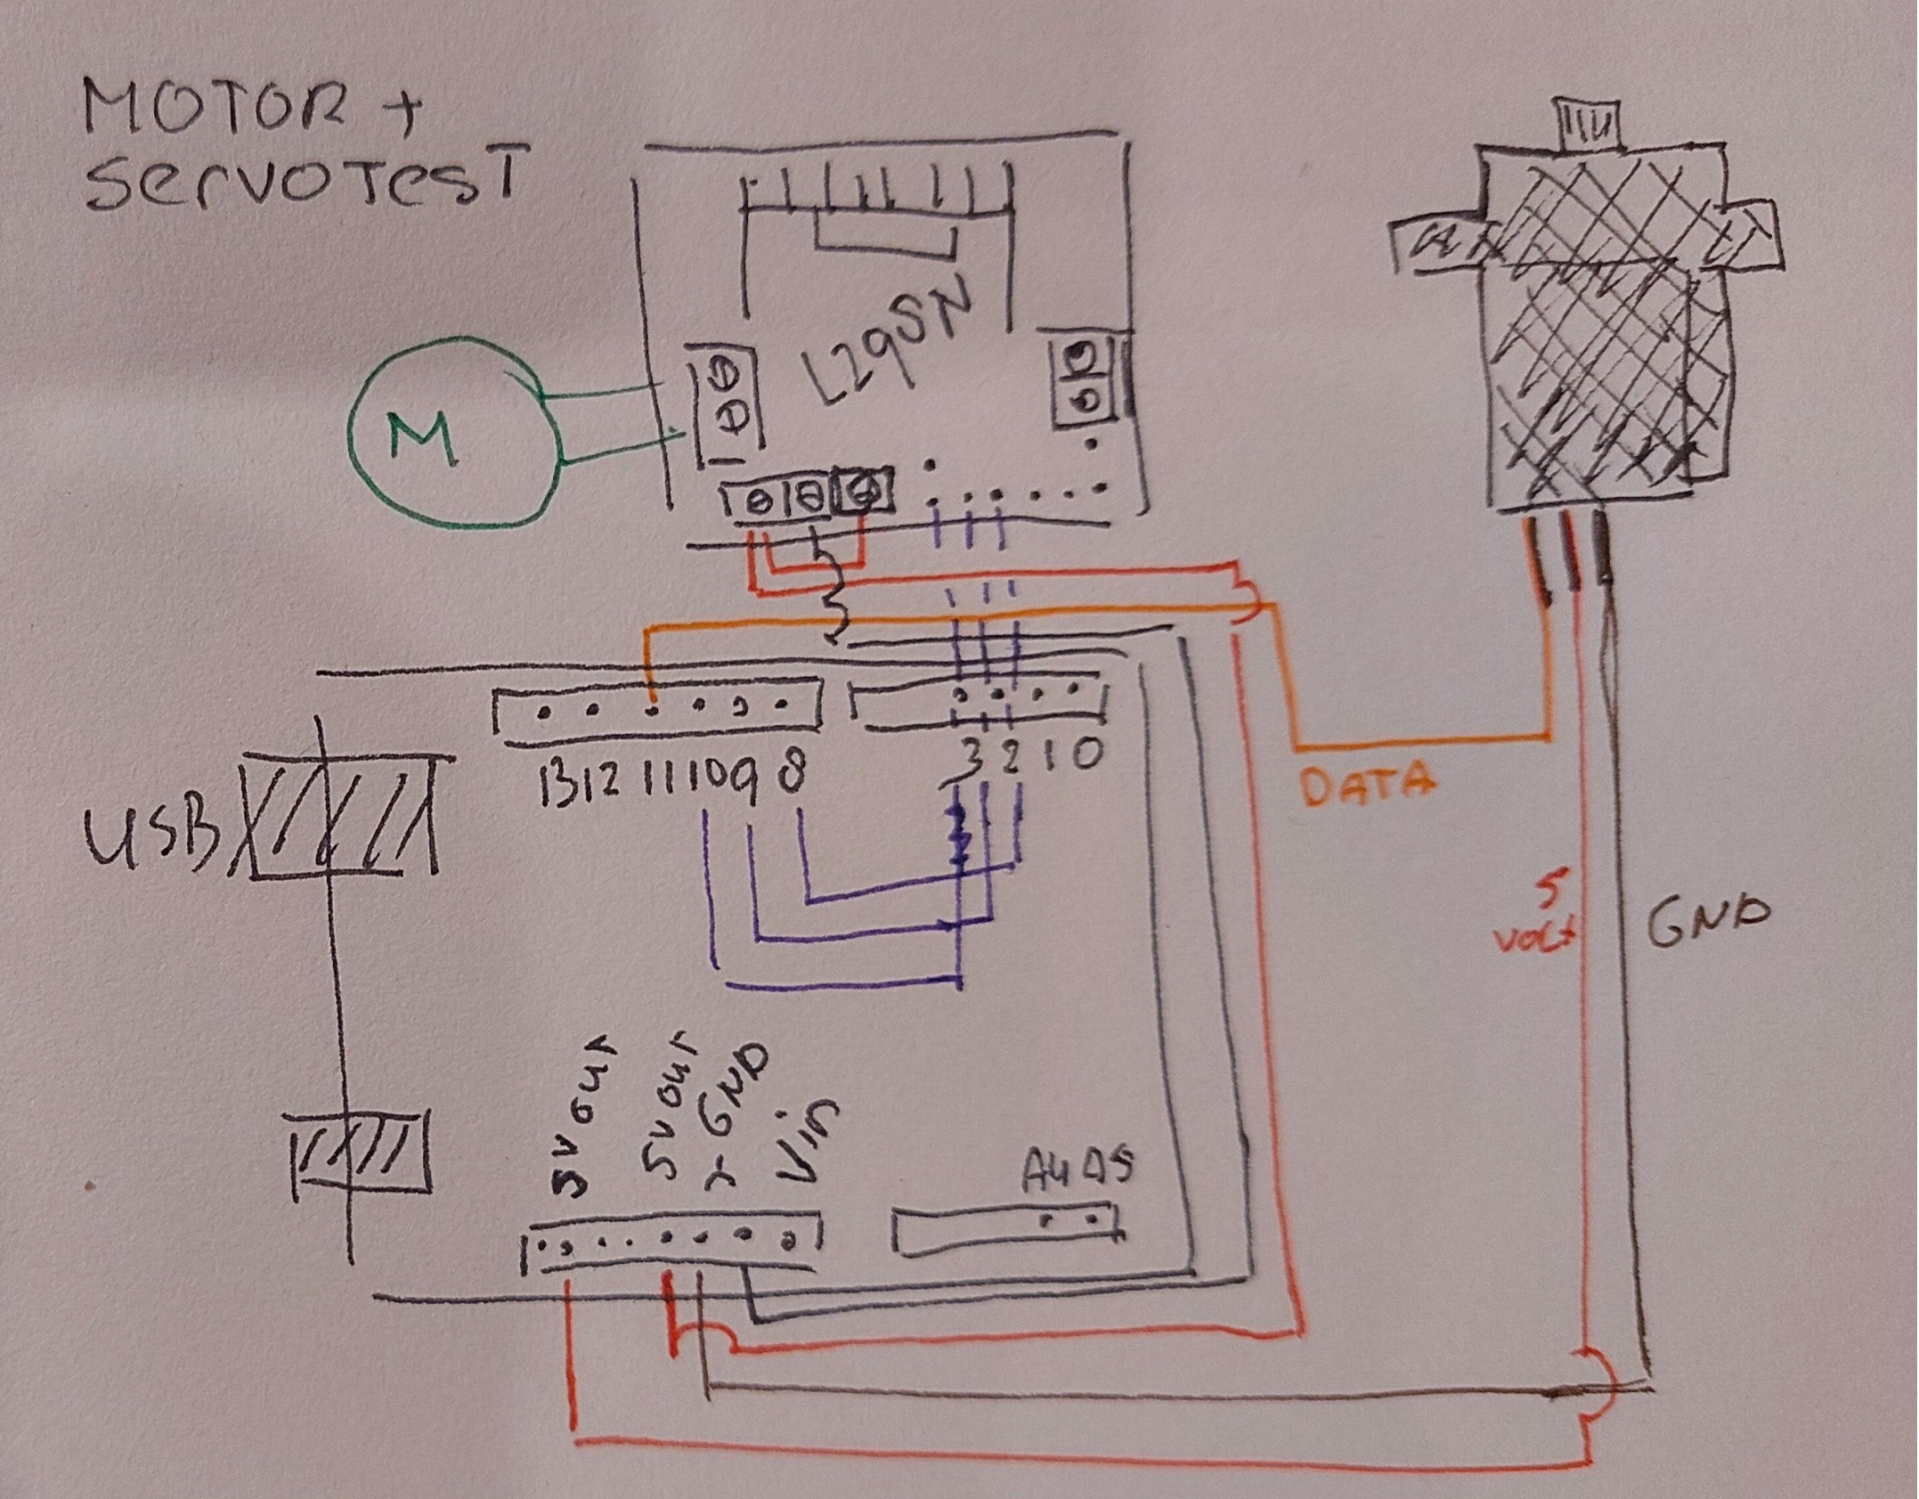 MOTOR +
SERVO TEST
L298N
M
13 12 11 10 9 8
3 2 1 0
USB
DATA
5
VOLT
GND
5V OUT
5V OUT
2x GND
Vin
A4 A5